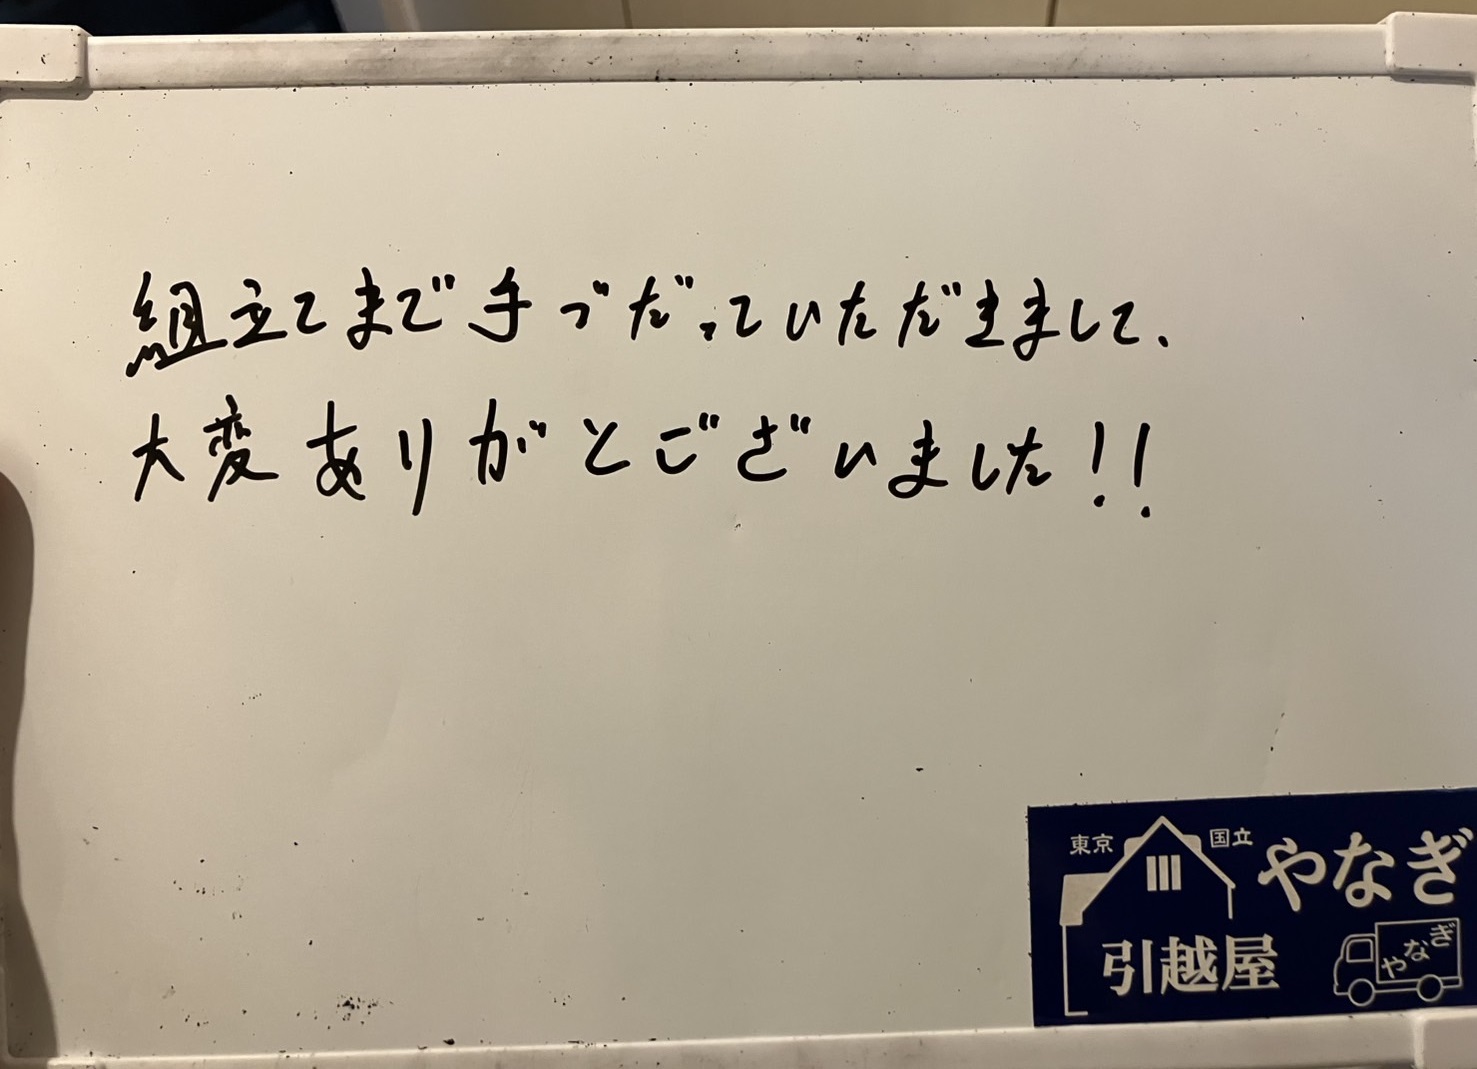 組立てまで手づだっていただきまして、
大変ありがとございました!!
東京 国立 やなぎ
引越屋
やなぎ